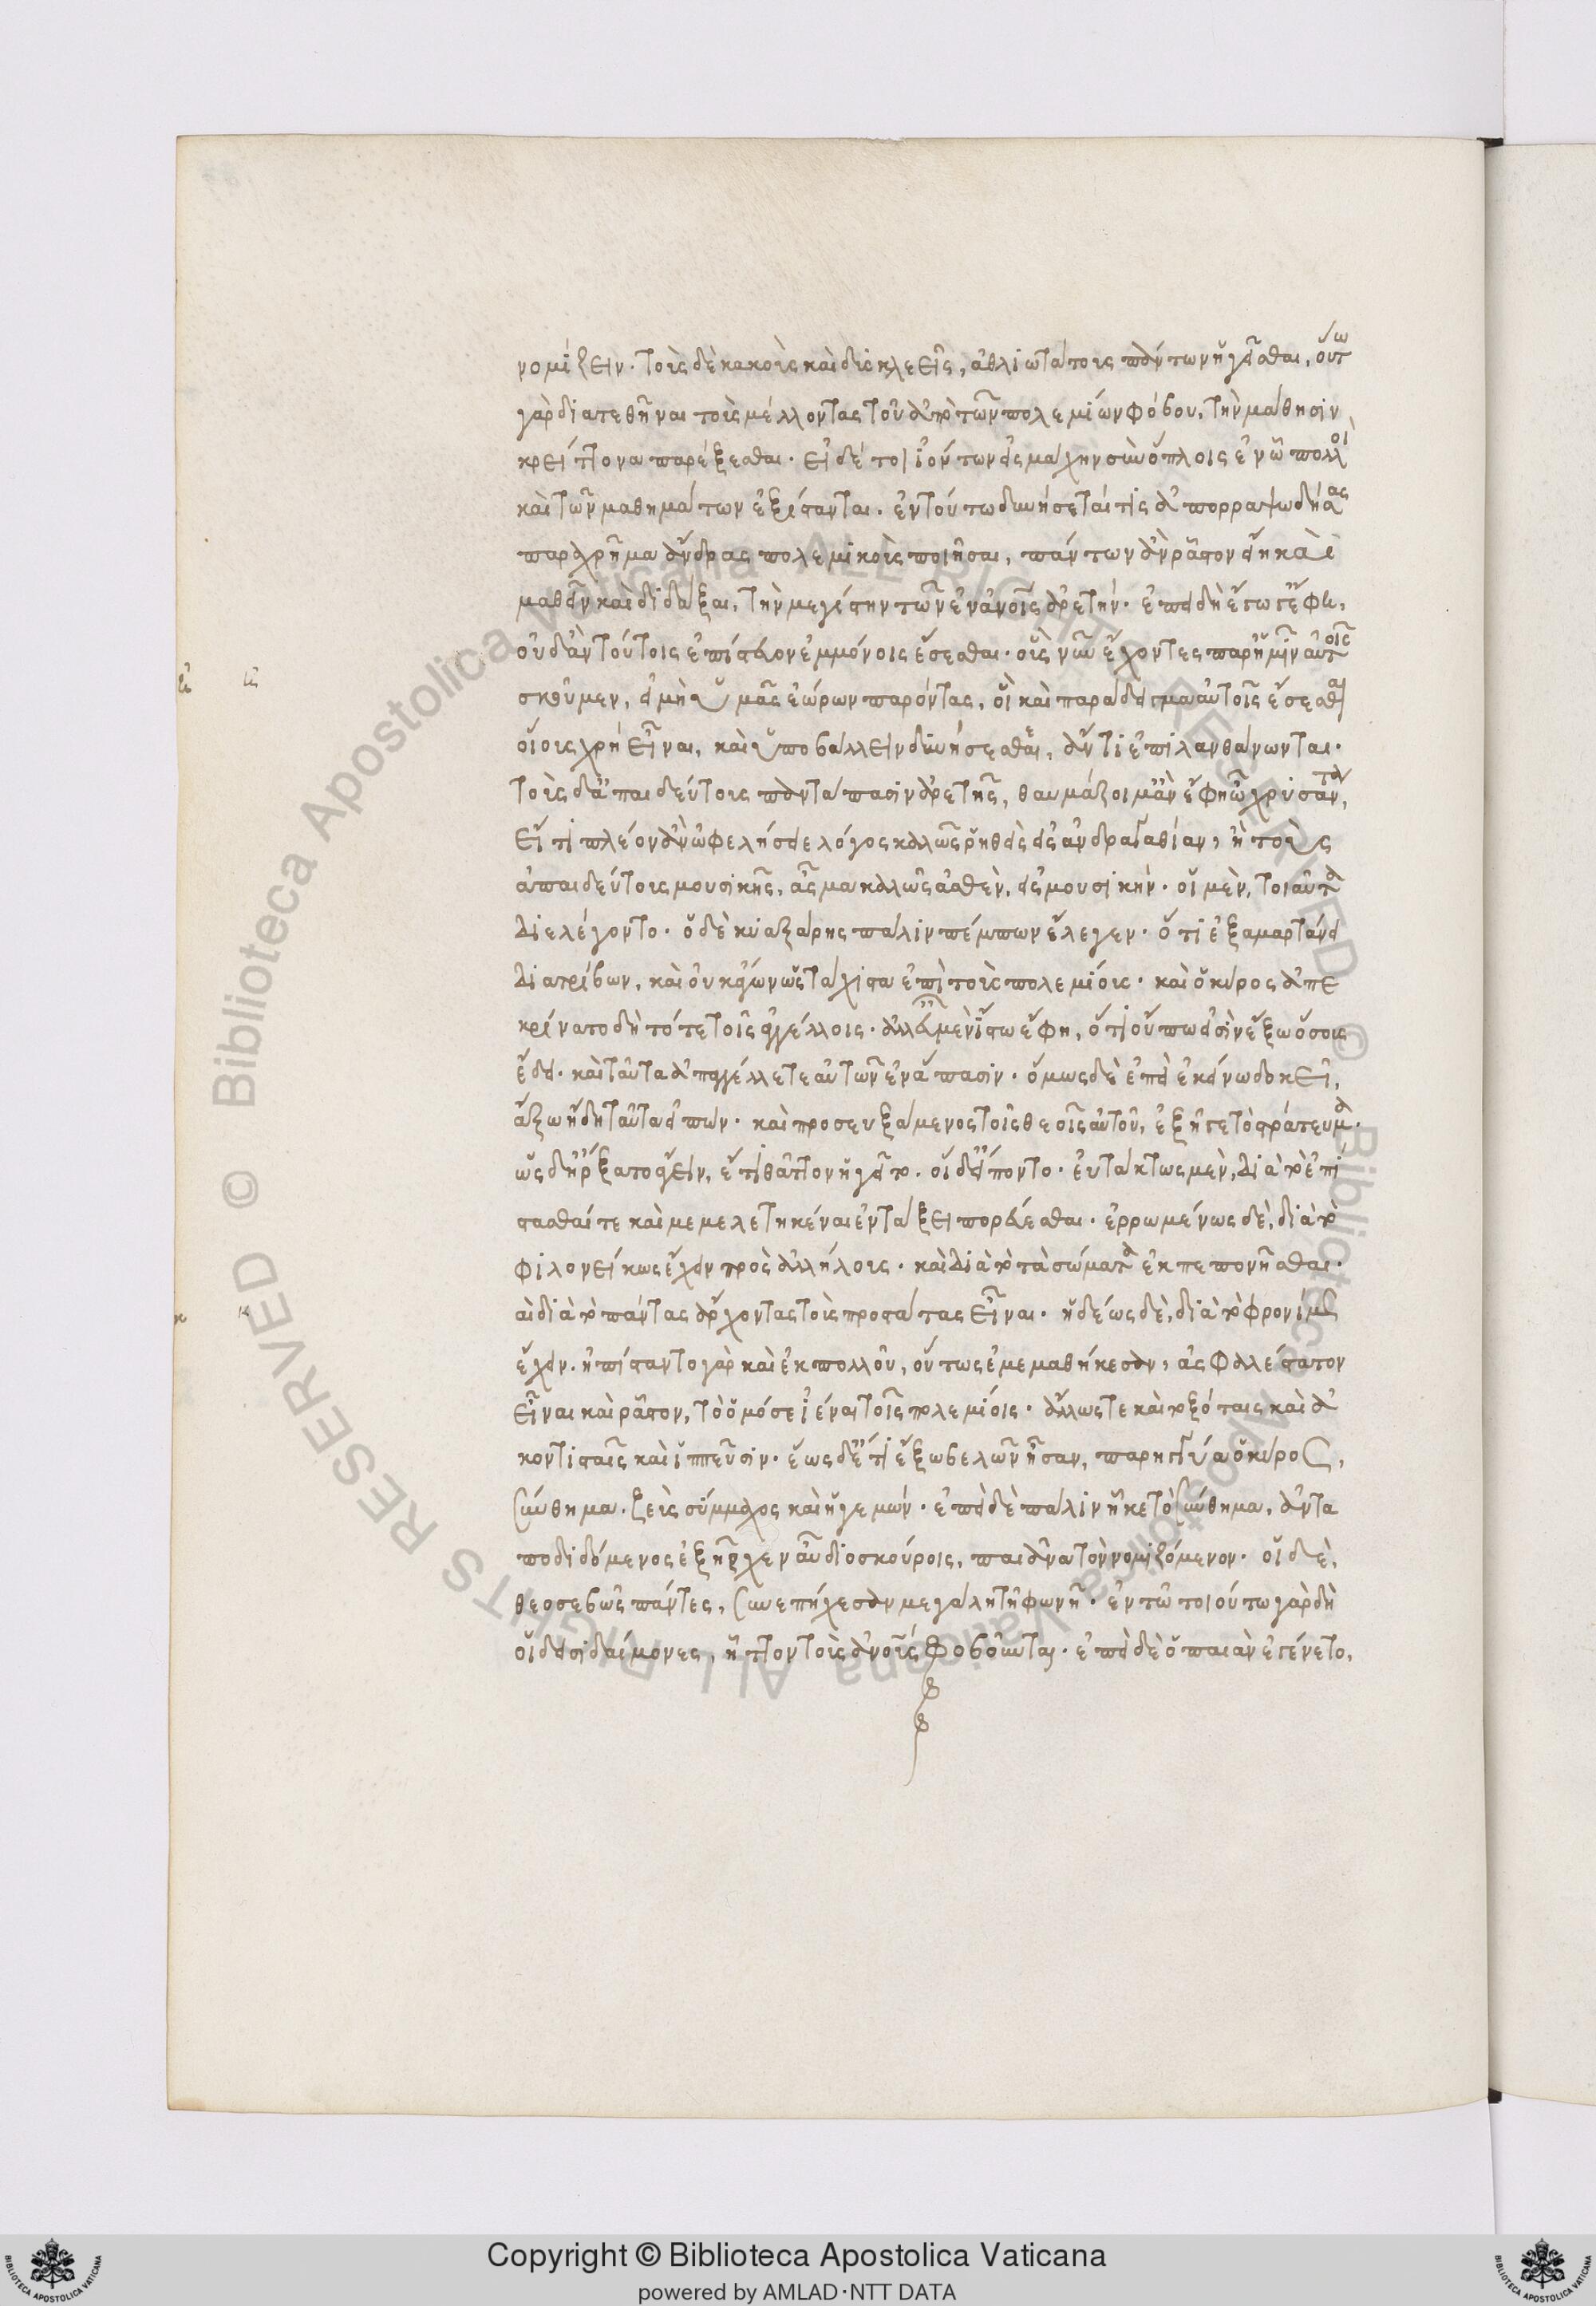 νομίζειν. τοὺς δὲ κακοὺς καὶ δυσκλεεῖς, ἀθλιωτάτους πάντων ἡγεῖσθαι, οὕτω
γὰρ διατεθῆναι τοὺς μέλλοντας τοῦ ἀπὸ τῶν πολεμίων φόβου, τὴν μάθησιν
κρείττονα παρέξεσθαι. εἰ δέ τοι ἰόντων εἰς μάχην σὺν ὅπλοις ἐν ᾧ πολλοὶ
καὶ τῶν μαθημάτων ἐξίστανται. ἐν τούτω δυνήσεταί τις ἀπορραψωδήσας
παραχρῆμα ἄνδρας πολεμικοὺς ποιῆσαι, πάντων ἂν ῥᾶστον εἴη καὶ
μαθεῖν καὶ διδάξαι, τὴν μεγίστην τῶν ἐν ἀνοις ἀρετήν. ἐπεὶ δὴ ἔγωγ ἔφη,
οὐδ ἂν τούτοις ἐπίστευον ἐμμόνοις ἔσεσθαι. οὓς νῦν ἔχοντες παρ ἡμῖν αὐτοῖς
ἀσκοῦμεν, εἰ μὴ ὑμᾶς ἑώρων παρόντας, οἳ καὶ παράδειγμα αὐτοῖς ἔσεσθαι
οἵους χρὴ εἶναι, καὶ ὑποβάλλειν δυνήσεσθαι, ἄν τι ἐπιλανθάνωνται.
τοὺς δ ἀπαιδεύτους πάντάπασιν ἀρετῆς, θαυμάζοιμ ἂν ἔφη ὦ χρυσάντα,
εἴ τι πλέον ἂν ὠφελήσειε λόγος καλῶς ῥηθεὶς εἰς ἀνδραγαθίαν, ἢ τοὺς
ἀπαιδεύτους μουσικῆς, ἆσμα καλῶς ἀσθὲν, εἰς μουσικήν. οἱ μὲν, τοιαῦτα
διελέγοντο. ὁ δὲ κυαξάρης πάλιν πέμπων ἔλεγεν. ὅτι ἐξαμαρτάνει
διατρίβων, καὶ οὐκ ἄγων ὡς τάχιστα ἐπὶ τοὺς πολεμίους. καὶ ὁ κύρος ἀπε
κρίνατο δὴ τότε τοῖς ἀγγέλλοις. ἀλλ εὖ μὲν ἴστω ἔφη, ὅτι οὔπω εἰσὶν ἔξω ὅσους
ἔδει. καὶ ταῦτα ἀπαγγέλλετε αὐτῶ ἐν ἅπασιν. ὅμως δὲ ἐπεὶ ἐκείνω δοκεῖ,
ἄξω ἤδη ταῦτα εἰπὼν. καὶ προσευξάμενος τοῖς θεοῖς αὐτοῦ, ἐξῆγε τὸ στράτευμα.
ὡς δ ἤρξατο ἄγειν, ἔτι θᾶττον ἡγεῖτο. οἱ δ εἵποντο. εὐτάκτως μὲν, διὰ τὸ ἐπί
στασθαί τε καὶ μεμελετηκέναι ἐν τάξει πορεύεσθαι. ἐρρωμένως δὲ, διὰ τὸ
φιλονείκως ἔχειν πρὸς ἀλλήλους. καὶ διὰ τὸ τὰ σώματα ἐκπεπονῆσθαι.
αὶ διὰ τὸ πάντας ἄρχοντας τοὺς προστάτας εἶναι. ἡδέως δὲ, διὰ τὸ φρονίμως
ἔχειν. ἠπίσταντο γὰρ καὶ ἐκ πολλοῦ, οὕτως ἐμεμαθήκεσαν, ἀσφαλέστατον
εἶναι καὶ ῥᾶστον, τὸ ὁμόσε ἰέναι τοῖς πολεμίοις. ἄλλως τε καὶ τοξόταις καὶ ἀ
κοντισταῖς καὶ ἱππεῦσιν. ἕως δ ἔτι ἔξω βελῶν ἦσαν, παρηγγύα ὁ κύρος,
σύνθημα. ζεὺς σύμμαχος καὶ ἡγεμών. ἐπεὶ δὲ πάλιν ἧκε τὸ σύνθημα, ἀντα
ποδιδόμενος ἐξῆρχεν αὖ διοσκούροις, παιᾶνα τὸν νομιζόμενον. οἱ δὲ,
θεοσεβῶς πάντες, συνεπήχεσαν μεγάλη τῆ φωνῆ. ἐν τῶ τοιούτω γὰρ δὴ
οἱ δεισιδαίμονες, ἧττον τοὺς ἀνους φοβοῦνται. ἐπεὶ δὲ ὁ παιὰν ἐγένετο,